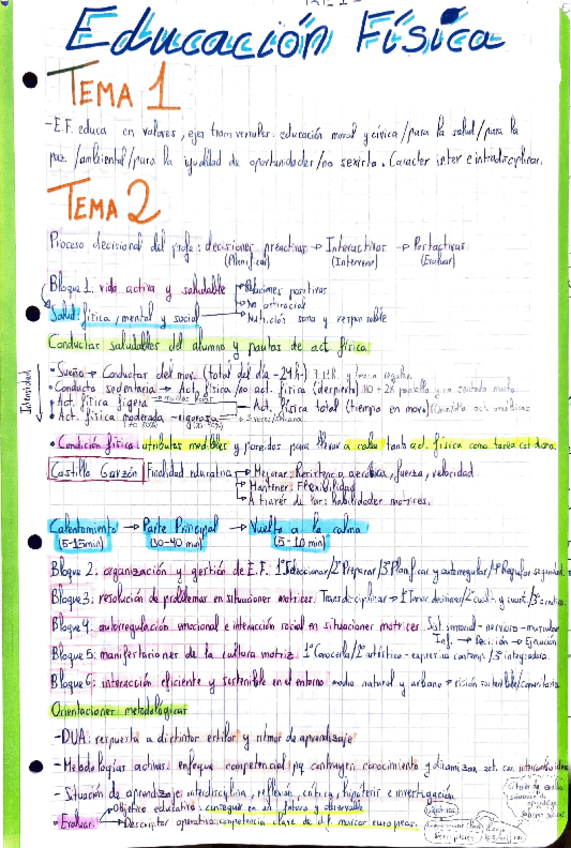 Educación Física
TEMA 1
-E.F. educa en valores, ejes transversales: educación moral y cívica / para la salud / para la
paz / ambiental / para la igualdad de oportunidades / no sexista. Caracter inter e intradisciplinar.
TEMA 2
Proceso decisional del profe: decisiones preactivas → Interactivas → Postactivas
(Planificar) (Intervenir) (Evaluar)
Bloque 1: vida activa y saludable → Relaciones positivas
→ No
Salud: física, mental y social → Nutrición sana y responsable
Conductas saludables del alumno y pautas de act. física
Intensidad
• Sueño → Conductas del mov. (total del día - 24h)
• Conducta sedentaria → Act. física / no act. física (despierto)
• Act. física ligera → Act. física total (tiempo en mov.)
• Act. física moderada - vigorosa
• Condición física: atributos medibles y poseidos para llevar a cabo tanto act. física como tarea cotidiana.
Castillo Garzón Finalidad educativa → Mejorar: Resistencia aeróbica, fuerza, velocidad
→ Mantener: Flexibilidad
→ A través de las: habilidades motrices.
Calentamiento → Parte Principal → Vuelta a la calma
(5-15min) (30-40 min) (5-10 min)
Bloque 2: organización y gestión de E.F. 1º Seleccionar / 2º Preparar / 3º Planificar y autorregular / 4º Regular seguridad.
Bloque 3: resolución de problemas en situaciones motrices.
Bloque 4: autorregulación emocional e interacción social en situaciones motrices → Decisión → Ejecución
Bloque 5: manifestaciones de la cultura motriz 1º Conocerla / 2º artístico - expresiva contemp. / 3º integradora.
Bloque 6: interacción eficiente y sostenible en el entorno medio natural y urbano → visión sostenible / comunitaria
Orientaciones metodológicas
-DUA: respuesta a distintos estilos y ritmos de aprendizaje
-Metodologías activas: enfoque competencial pq contruyen conocimiento y dinamizan act. con
-Situación de aprendizaje: interdisciplina, reflexión, crítica, hipótesis e investigación
• Evaluar → Objetivo educativo: conseguir en el futuro y observable
→ Descriptor operativo: competencia clave de d.f. marcos europeos.